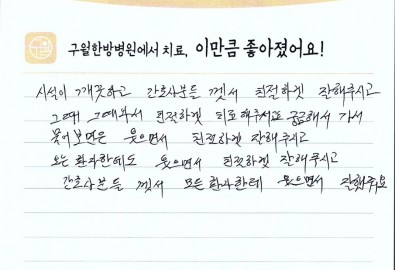 구월한방병원에서 치료, 이만큼 좋아졌어요!
시석이 깨끗하고 간호사분들 껫서 친절하겟 잘해주시고
그때 그때와서 친절하겟 치료해주시고 궁금해서 가서
물어보면은 웃으면서 친절하겟 잘해주시고
오는 환자한테도 웃으면서 친절하겟 잘해주시고
간호사분들 껫서 모든 환자한테 웃으면서 잘해줘요